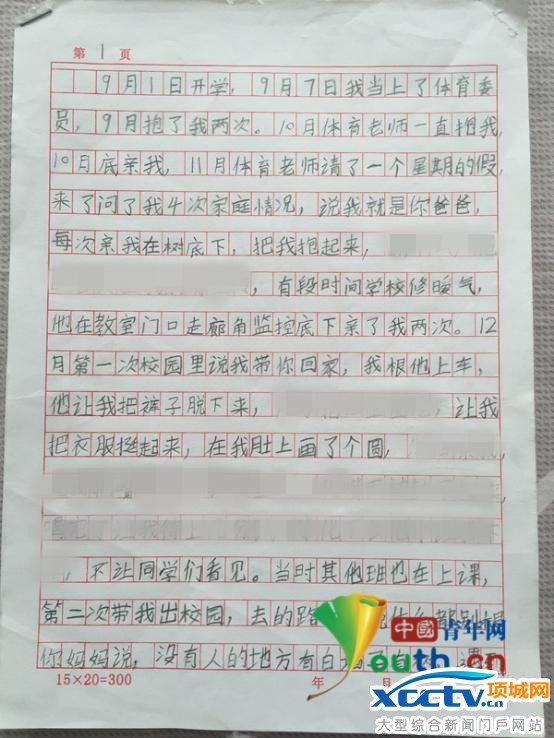 第 1 页
9月1日开学，9月7日我当上了体育委
员，9月抱了我两次。10月体育老师一直抱我，
10月底亲我，11月体育老师请了一个星期的假，
来了问了我4次家庭情况，说我就是你爸爸，
每次亲我在树底下，把我抱起来，
，有段时间学校修暖气，
他在教室门口走廊角监控底下亲了我两次。12
月第一次校园里说我带你回家，我根他上车，
他让我把裤子脱下来，，让我
把衣服挺起来，在我肚上画了个圆
，不让同学们看见。当时其他班也在上课，
第二次带我出校园，去的路
你妈妈说，没有人的地方有白
15×20=300
年 月
中國青年网
Youth.cn
xcctv.cn 项城网
大型综合新闻门戶网站